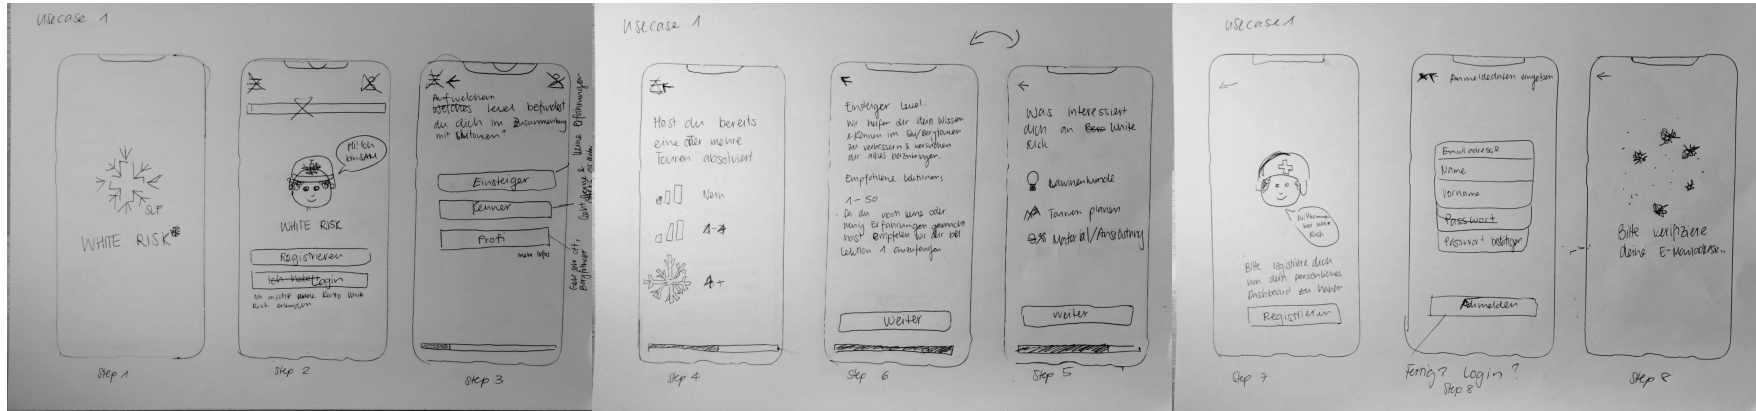 Usecase 1
SLF
WHITE RISK
Step 1
Hi! Ich
bin SAM
WHITE RISK
Registrieren
Login
Ich möchte ohne Konto White
Risk erkunden
Step 2
Auf welchem
Level befindest
du dich im Zusammenhang
mit Skitouren?
Einsteiger
Kenner
Profi
mehr Infos
keine Erfahrungen
Geht sehr oft,
Bergführer
Step 3
Usecase 1
Hast du bereits
eine oder mehre
Touren absolviert
Nein
1-4
4+
Step 4
Einsteiger Level:
Wir helfen dir dein Wissen
& Können im Ski/Bergtouren
zu verbessern & versuchen
dir alles beizubringen.
Empfohlene Lektionen:
1-50
Da du noch keine oder
wenig Erfahrungen gemacht
hast empfehlen wir dir bei
Lektion 1 anzufangen
Weiter
Step 6
Was interessiert
dich an White
Risk
Lawinenkunde
Touren planen
Material/Ausrüstung
Weiter
Step 5
Usecase 1
Willkommen
bei White
Risk
Bitte registriere dich
um dein persönliches
Dashboard zu haben
Registrieren
Step 7
Anmeldedaten eingeben
Emailadresse
Name
Vorname
Passwort
Passwort bestätigen
Anmelden
Fertig? Login?
Step 8
Bitte verifiziere
deine E-Mailadresse..
Step 8